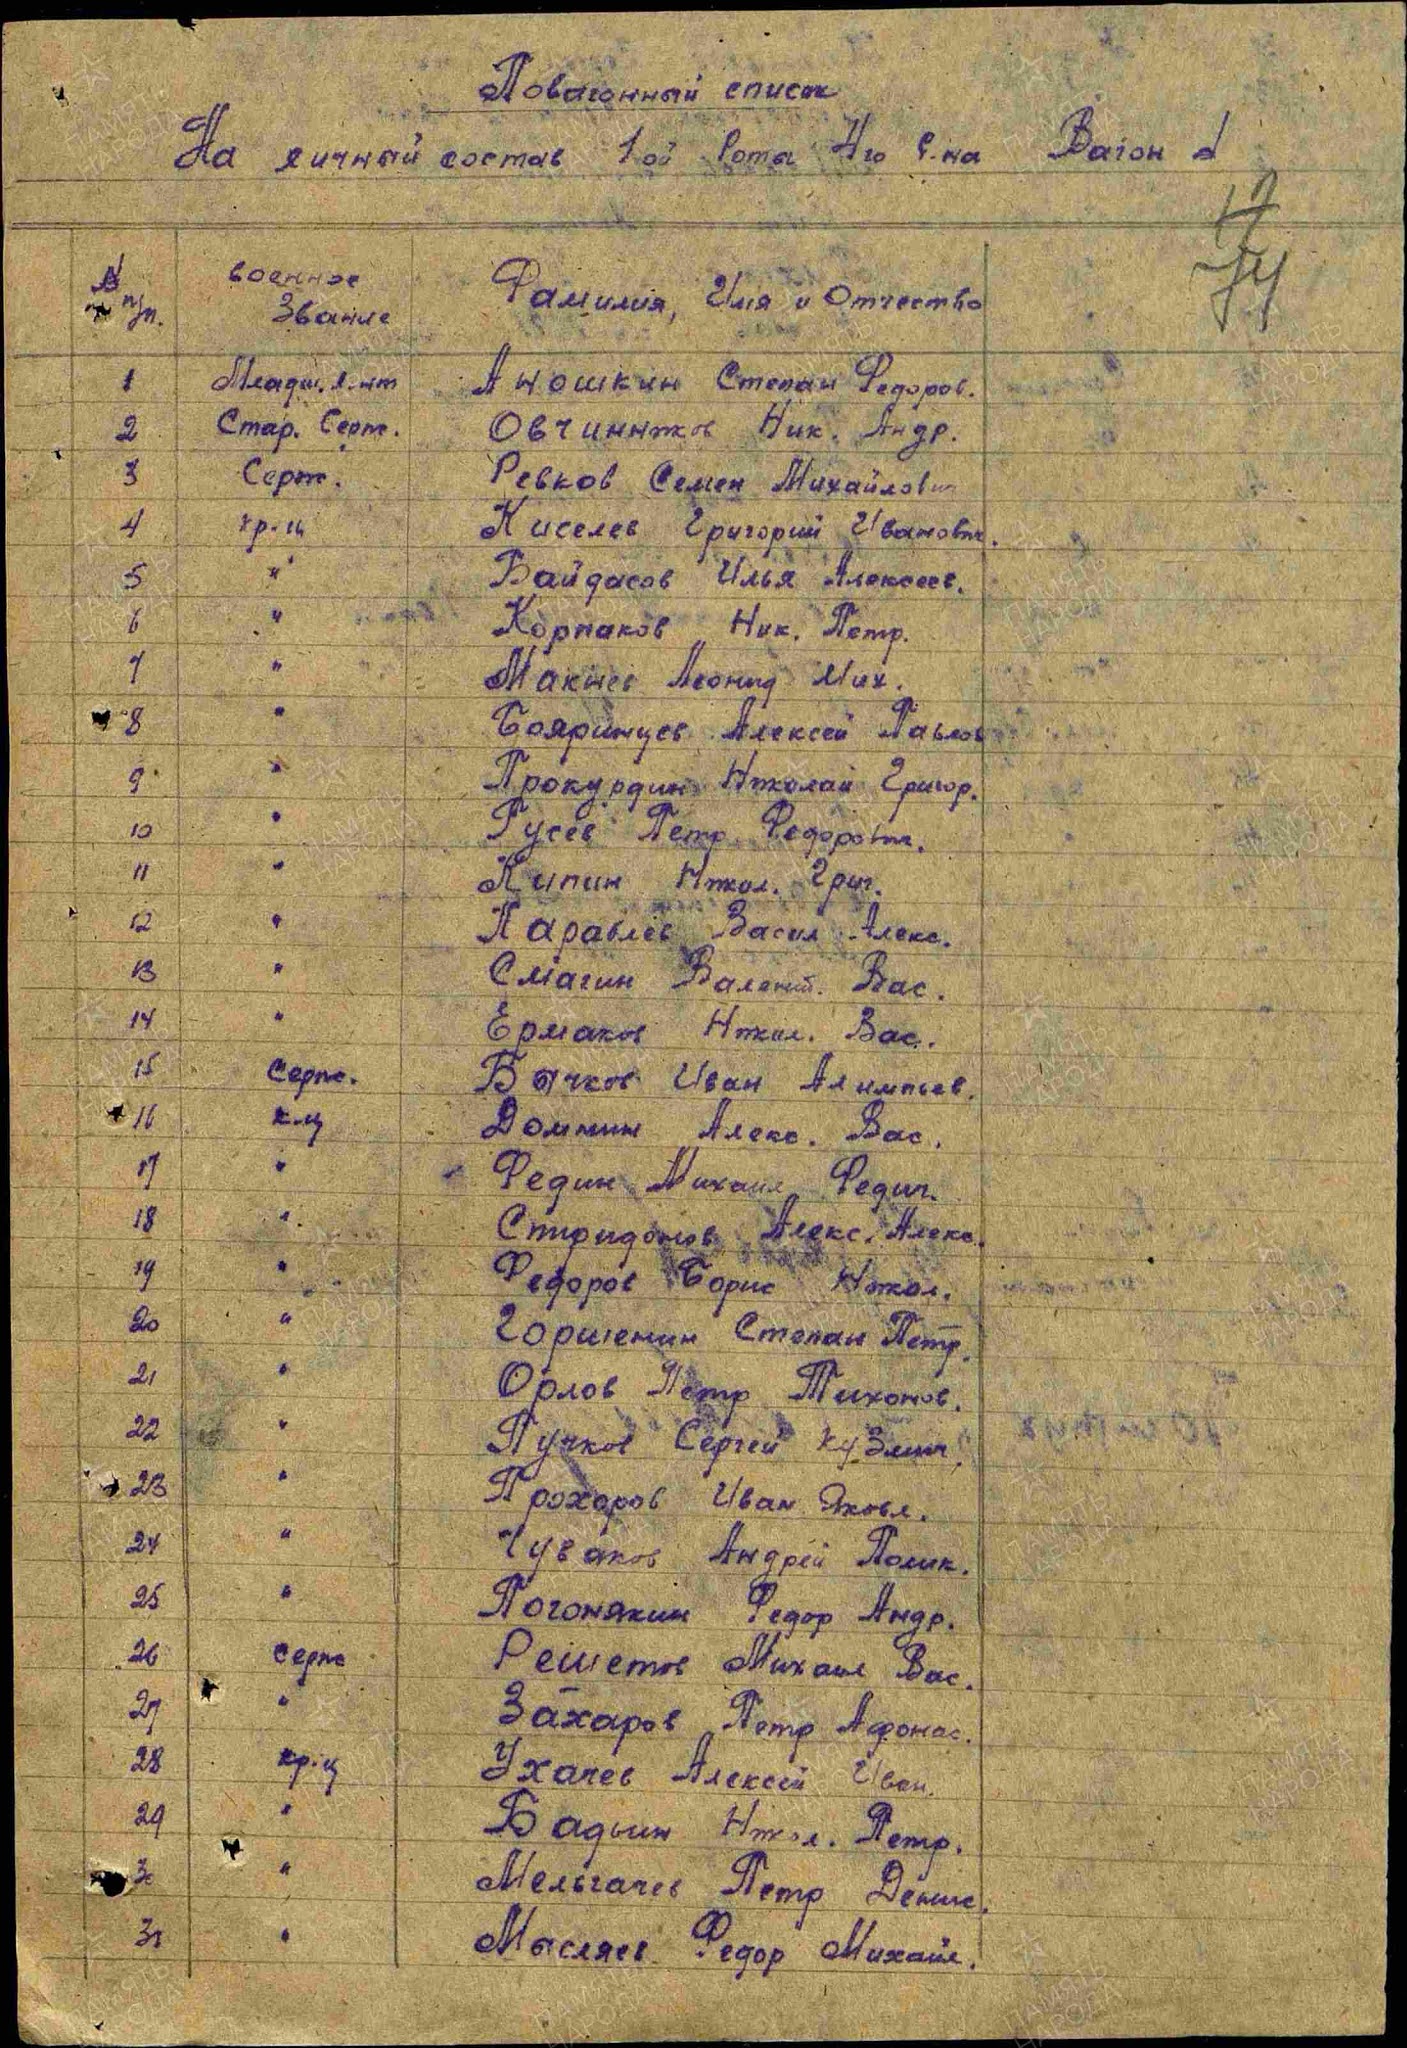 Повагонный список
На личный состав 1ой Роты 4го Б-на Вагон №
17
74
№ п/п. военное Звание Фамилия, Имя и Отчество
1 Младш. л-нт Аношкин Степан Федоров.
2 Стар. Серж. Овчинников Ник. Андр.
3 Серж. Ревков Семен Михайлович
4 кр-ц Киселев Григорий Иванович.
5 " Байдасов Илья Алексеев.
6 " Корпаков Ник. Петр.
7 " Макнев Леонид Мих.
8 " Бояринцев Алексей Павлов
9 " Прокурдин Николай Григор.
10 " Гусев Петр Федорович.
11 " Кипин Никол. Григ.
12 " Каравлев Васил Алекс.
13 " Смагин Валент. Вас.
14 " Ермаков Никол. Вас.
15 Серж. Бычков Иван Алимпьев.
16 к-ц Домнин Алекс. Вас.
17 " Федин Михаил
18 " Спиридонов Алекс. Алекс.
19 " Федоров Борис Никол.
20 " Горшенин Степан Петр.
21 " Орлов Петр Тихонов.
22 " Пучков Сергей Кузмич.
23 " Прохоров Иван Яковл.
24 " Чуваков Андрей
25 " Погонякин Федор Андр.
26 серж Решетов Михаил Вас.
27 " Захаров Петр Афонас.
28 кр-ц Ухачев Алексей Иван.
29 " Бадьин Никол. Петр.
30 " Мельгачев Петр Денис.
31 " Мысляев Федор Михайл.
ПАМЯТЬ НАРОДА